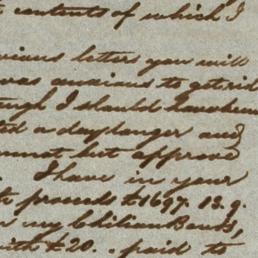 contents of which I
vious letters you will
was anxious to get rid
ough I should
ed a day longer and
nnot but approve
I have in your
proceeds £1697. 13. 9.
my Chilian Bonds,
with £20. paid to